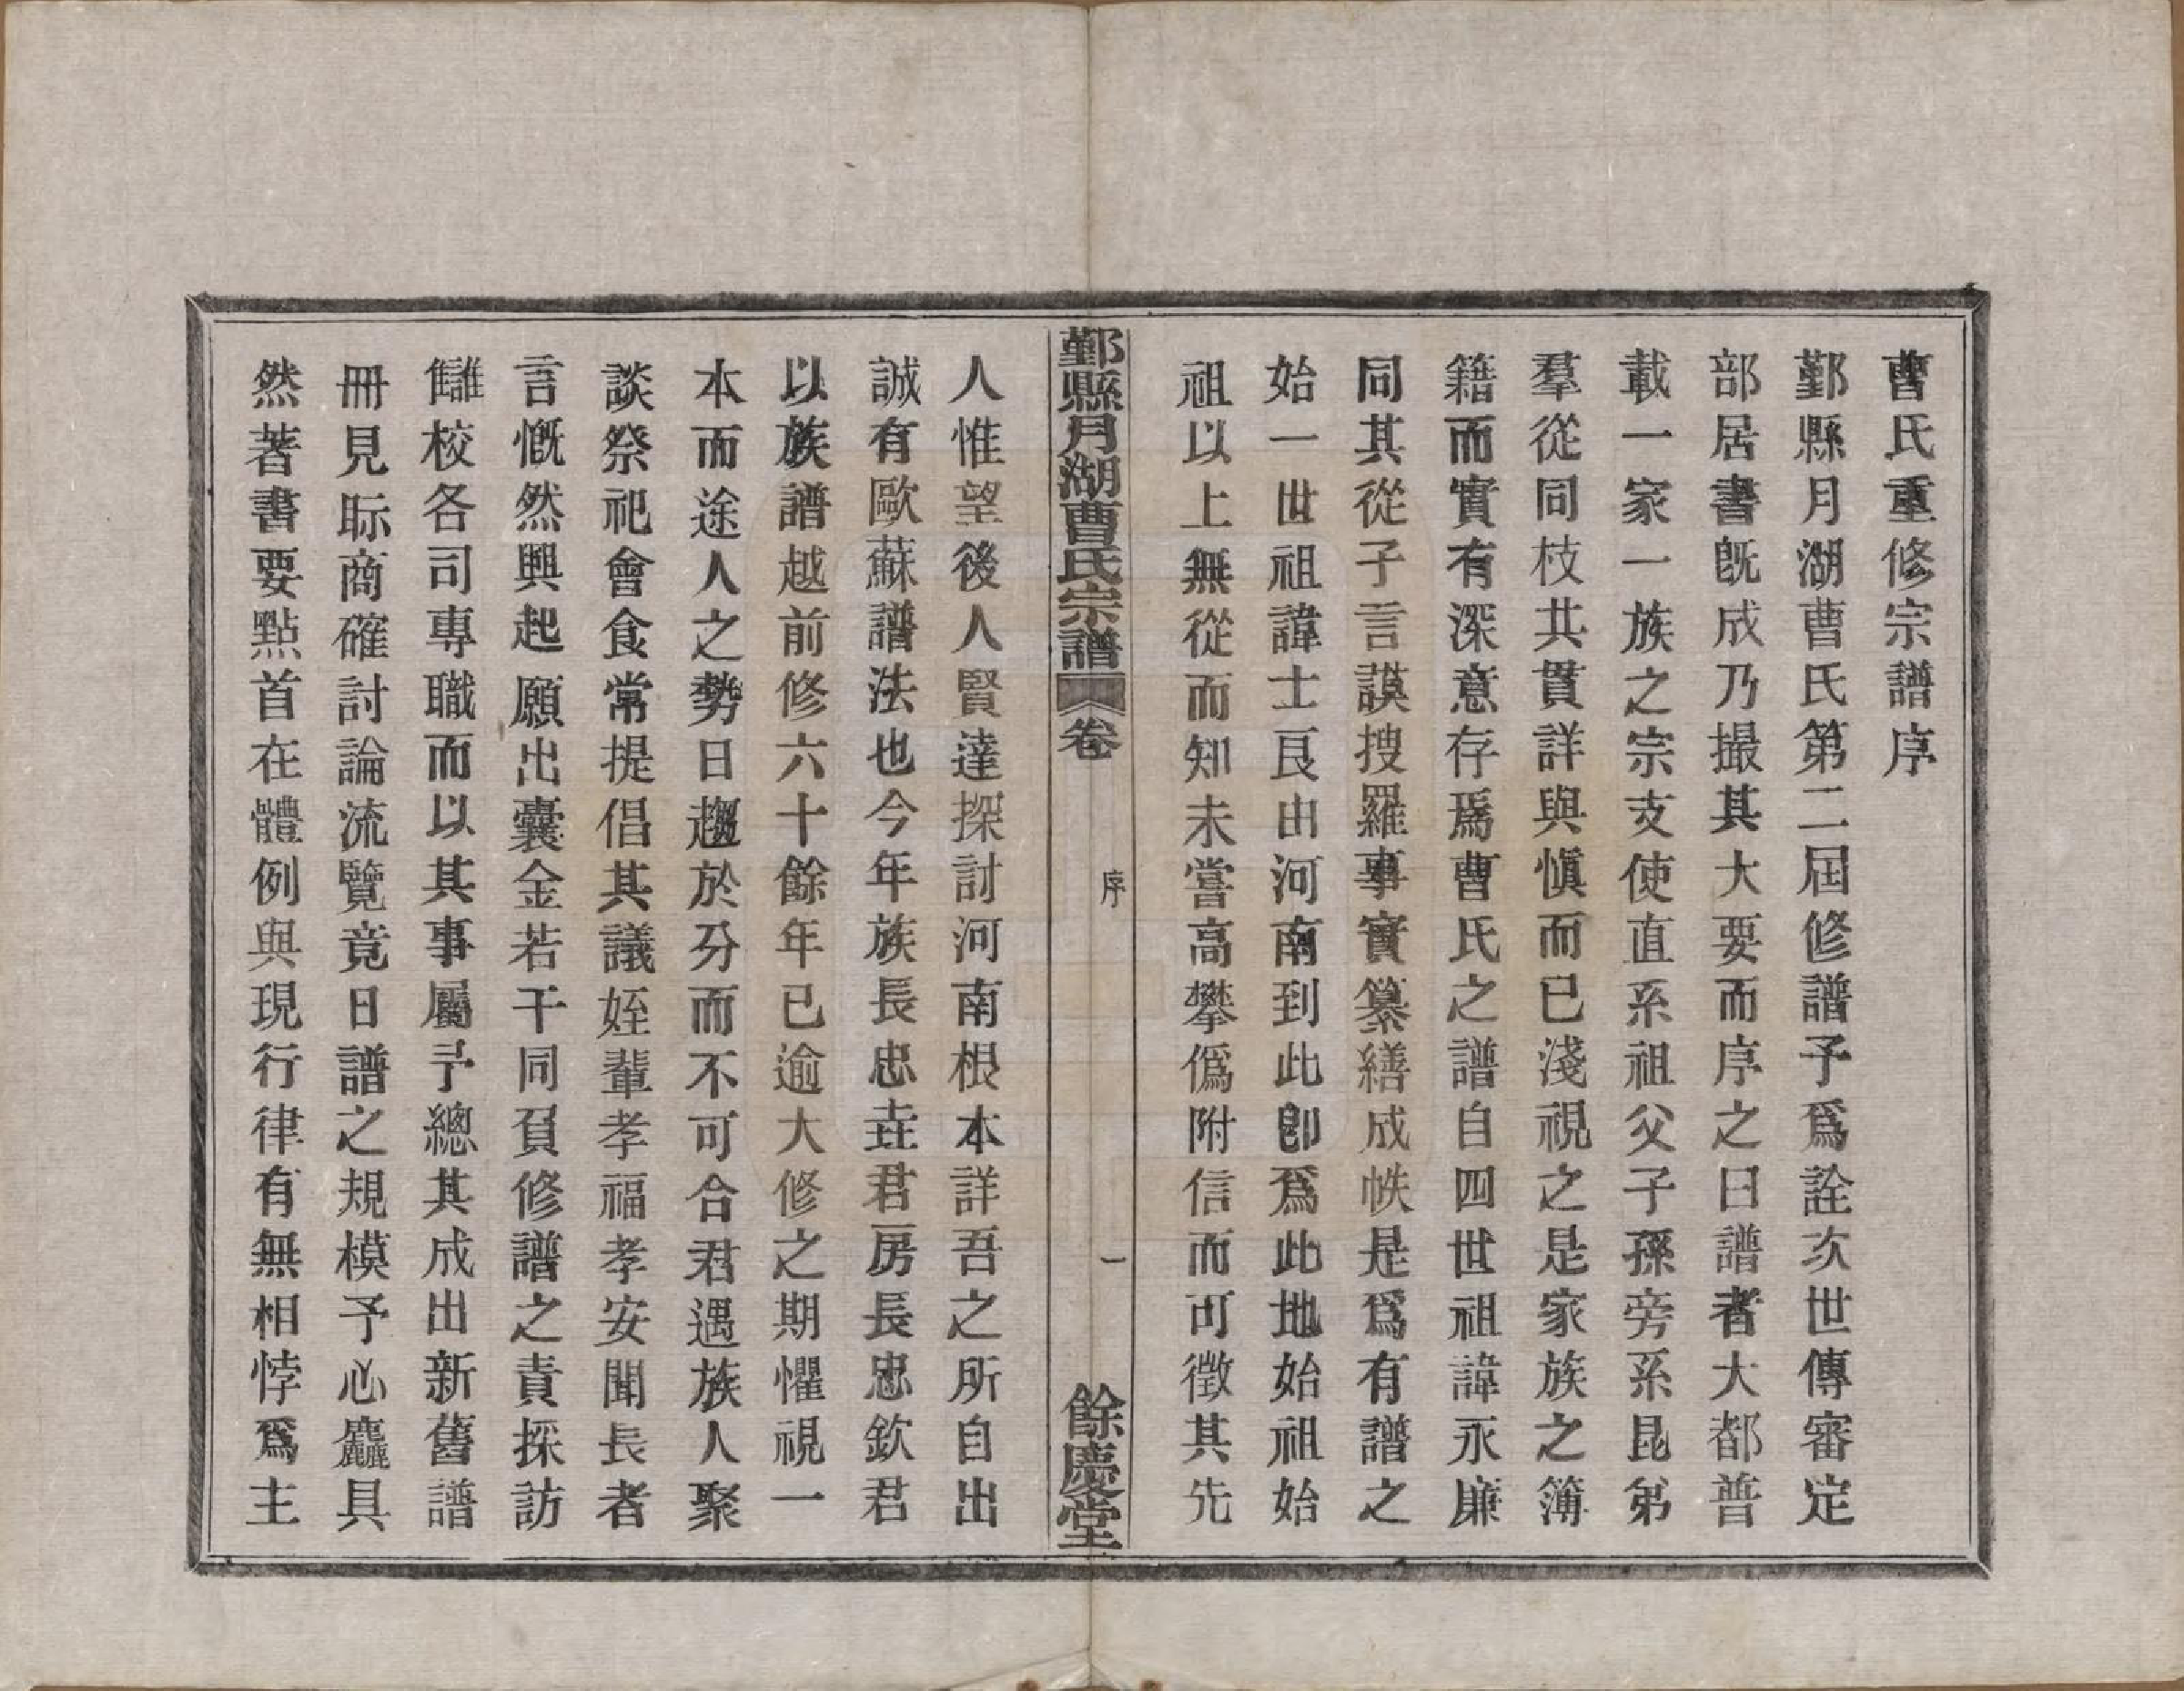 曹氏重修宗譜序
鄞縣月湖曹氏第二屆修譜予爲詮次世傳審定
部居書既成乃撮其大要而序之曰譜者大都普
載一家一族之宗支使直系祖父子孫旁系昆弟
羣從同枝共貫詳與愼而已淺視之是家族之簿
籍而實有深意存焉曹氏之譜自四世祖諱永廉
同其從子言謨搜羅事實纂繕成帙是爲有譜之
始一世祖諱士良由河南到此卽爲此地始祖始
祖以上無從而知未嘗高攀僞附信而可徵其先
鄞縣月湖曹氏宗譜 卷 序 一 餘慶堂
人惟望後人賢達探討河南根本詳吾之所自出
誠有歐蘇譜法也今年族長忠垚君房長忠欽君
以族譜越前修六十餘年已逾大修之期懼視一
本而途人之勢日趨於分而不可合君遇族人聚
談祭祀會食常提倡其議姪輩孝福孝安聞長者
言慨然興起願出囊金若干同負修譜之責採訪
讎校各司專職而以其事屬予總其成出新舊譜
冊見眎商確討論流覽竟日譜之規模予心麤具
然著書要點首在體例與現行律有無相悖爲主